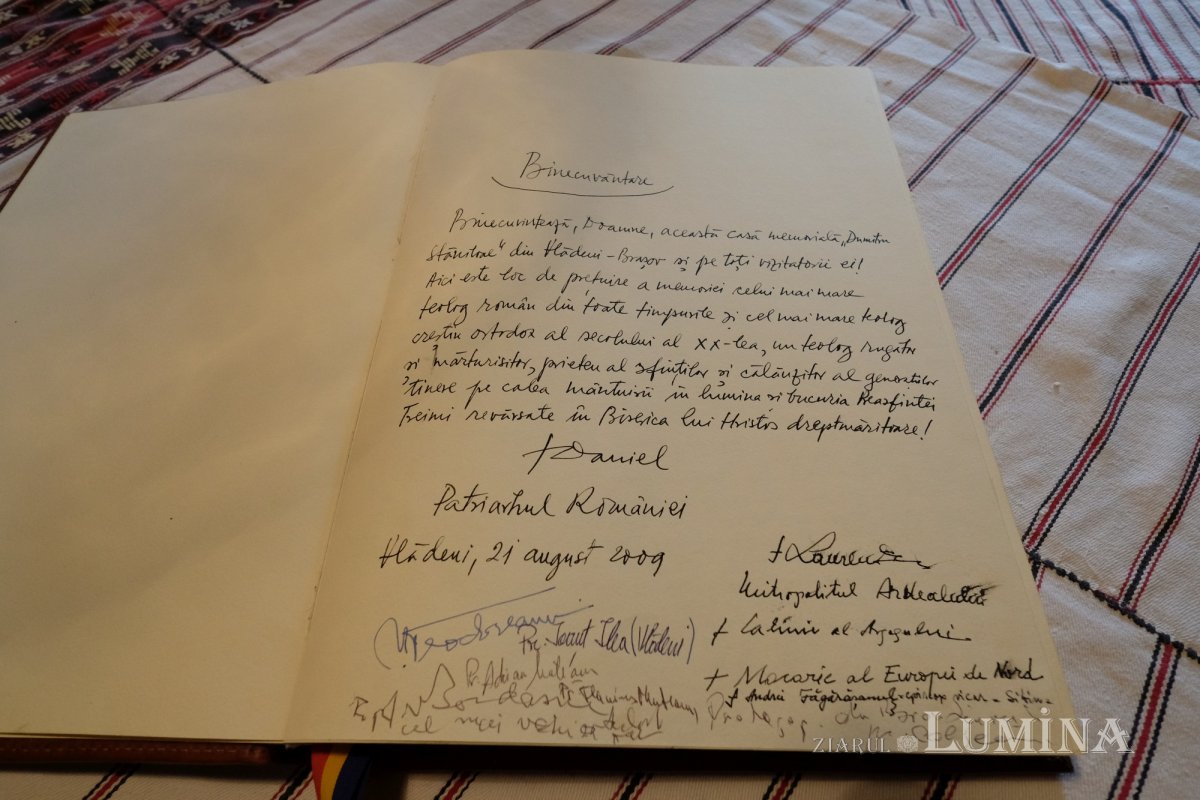 Binecuvântare
Binecuvintează, Doamne, această casă memorială „Dumitru
Stăniloae" din Vlădeni-Brașov și pe toți vizitatorii ei!
Aici este loc de prețuire a memoriei celui mai mare
teolog român din toate timpurile și cel mai mare teolog
creștin ortodox al secolului al XX-lea, un teolog rugător
și mărturisitor, prieten al sfinților și călăuzitor al generațiilor
tinere pe calea mântuirii în lumina și bucuria Preasfintei
Treimi revărsate în Biserica lui Hristos dreptmăritoare!
† Daniel
Patriarhul României
Vlădeni, 21 august 2009
† Laurențiu
Mitropolitul Ardealului
† Calinic al Argeșului
Ilea (Vlădeni)
† Macarie al Europei de Nord
Pr. Adrian
† Andrei Făgărășanul, episcop vicar - Sibiu
cel mai
ZIARUL LUMINA